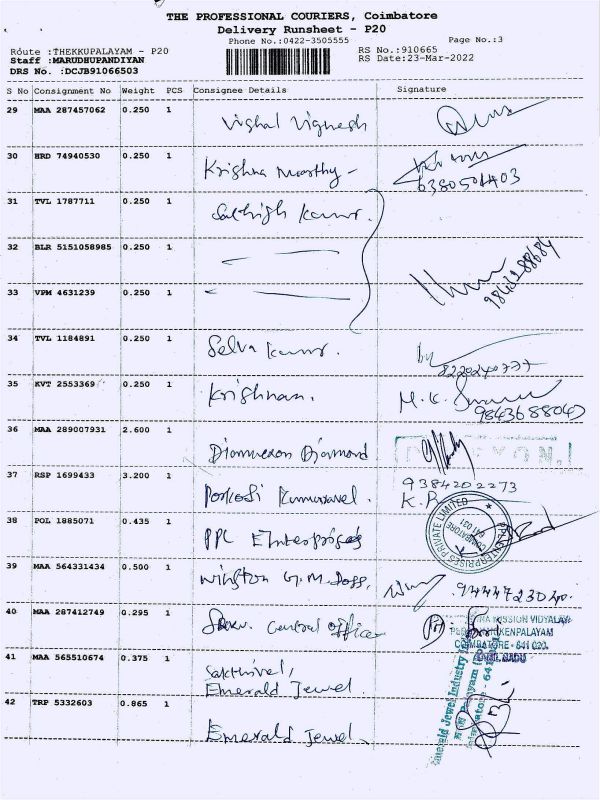 THE PROFESSIONAL COURIERS, Coimbatore
Delivery Runsheet - P20
Phone No.:0422-3505555
Page No.:3
Route :THEKKUPALAYAM - P20
RS No.:910665
Staff :MARUDHUPANDIYAN
RS Date:23-Mar-2022
DRS No. :DCJB91066503
S No Consignment No Weight PCS Consignee Details Signature
29 MAA 287457062 0.250 1 Vishal Vignesh
30 HRD 74940530 0.250 1 Krishna Moorthy -
6380501403
31 TVL 1787711 0.250 1 Sathish Kumar.
32 BLR 5151058985 0.250 1
9842188684
33 VPM 4631239 0.250 1
34 TVL 1184891 0.250 1 Selva Kumar.
8220240777
35 KVT 2553369 0.250 1 Krishnan. M.K.
9843688047
36 MAA 289007931 2.600 1 Diamond
37 RSP 1699433 3.200 1 Porkodi Kumaravel. 9384202273
K.R
38 POL 1885071 0.435 1 PPL Enterprises
PPL ENTERPRISES PRIVATE LIMITED
COIMBATORE
641 031
39 MAA 564331434 0.500 1 Winston G.M. Doss,
40 MAA 287412749 0.295 1 Central Officer
MISSION VIDYALAYA
COIMBATORE - 641 020.
TAMIL NADU
41 MAA 565510674 0.375 1 Sakthivel,
Emerald Jewel
42 TRP 5332603 0.865 1 Emerald Jewel.
Emerald Jewel Industry
Coimbatore - 641